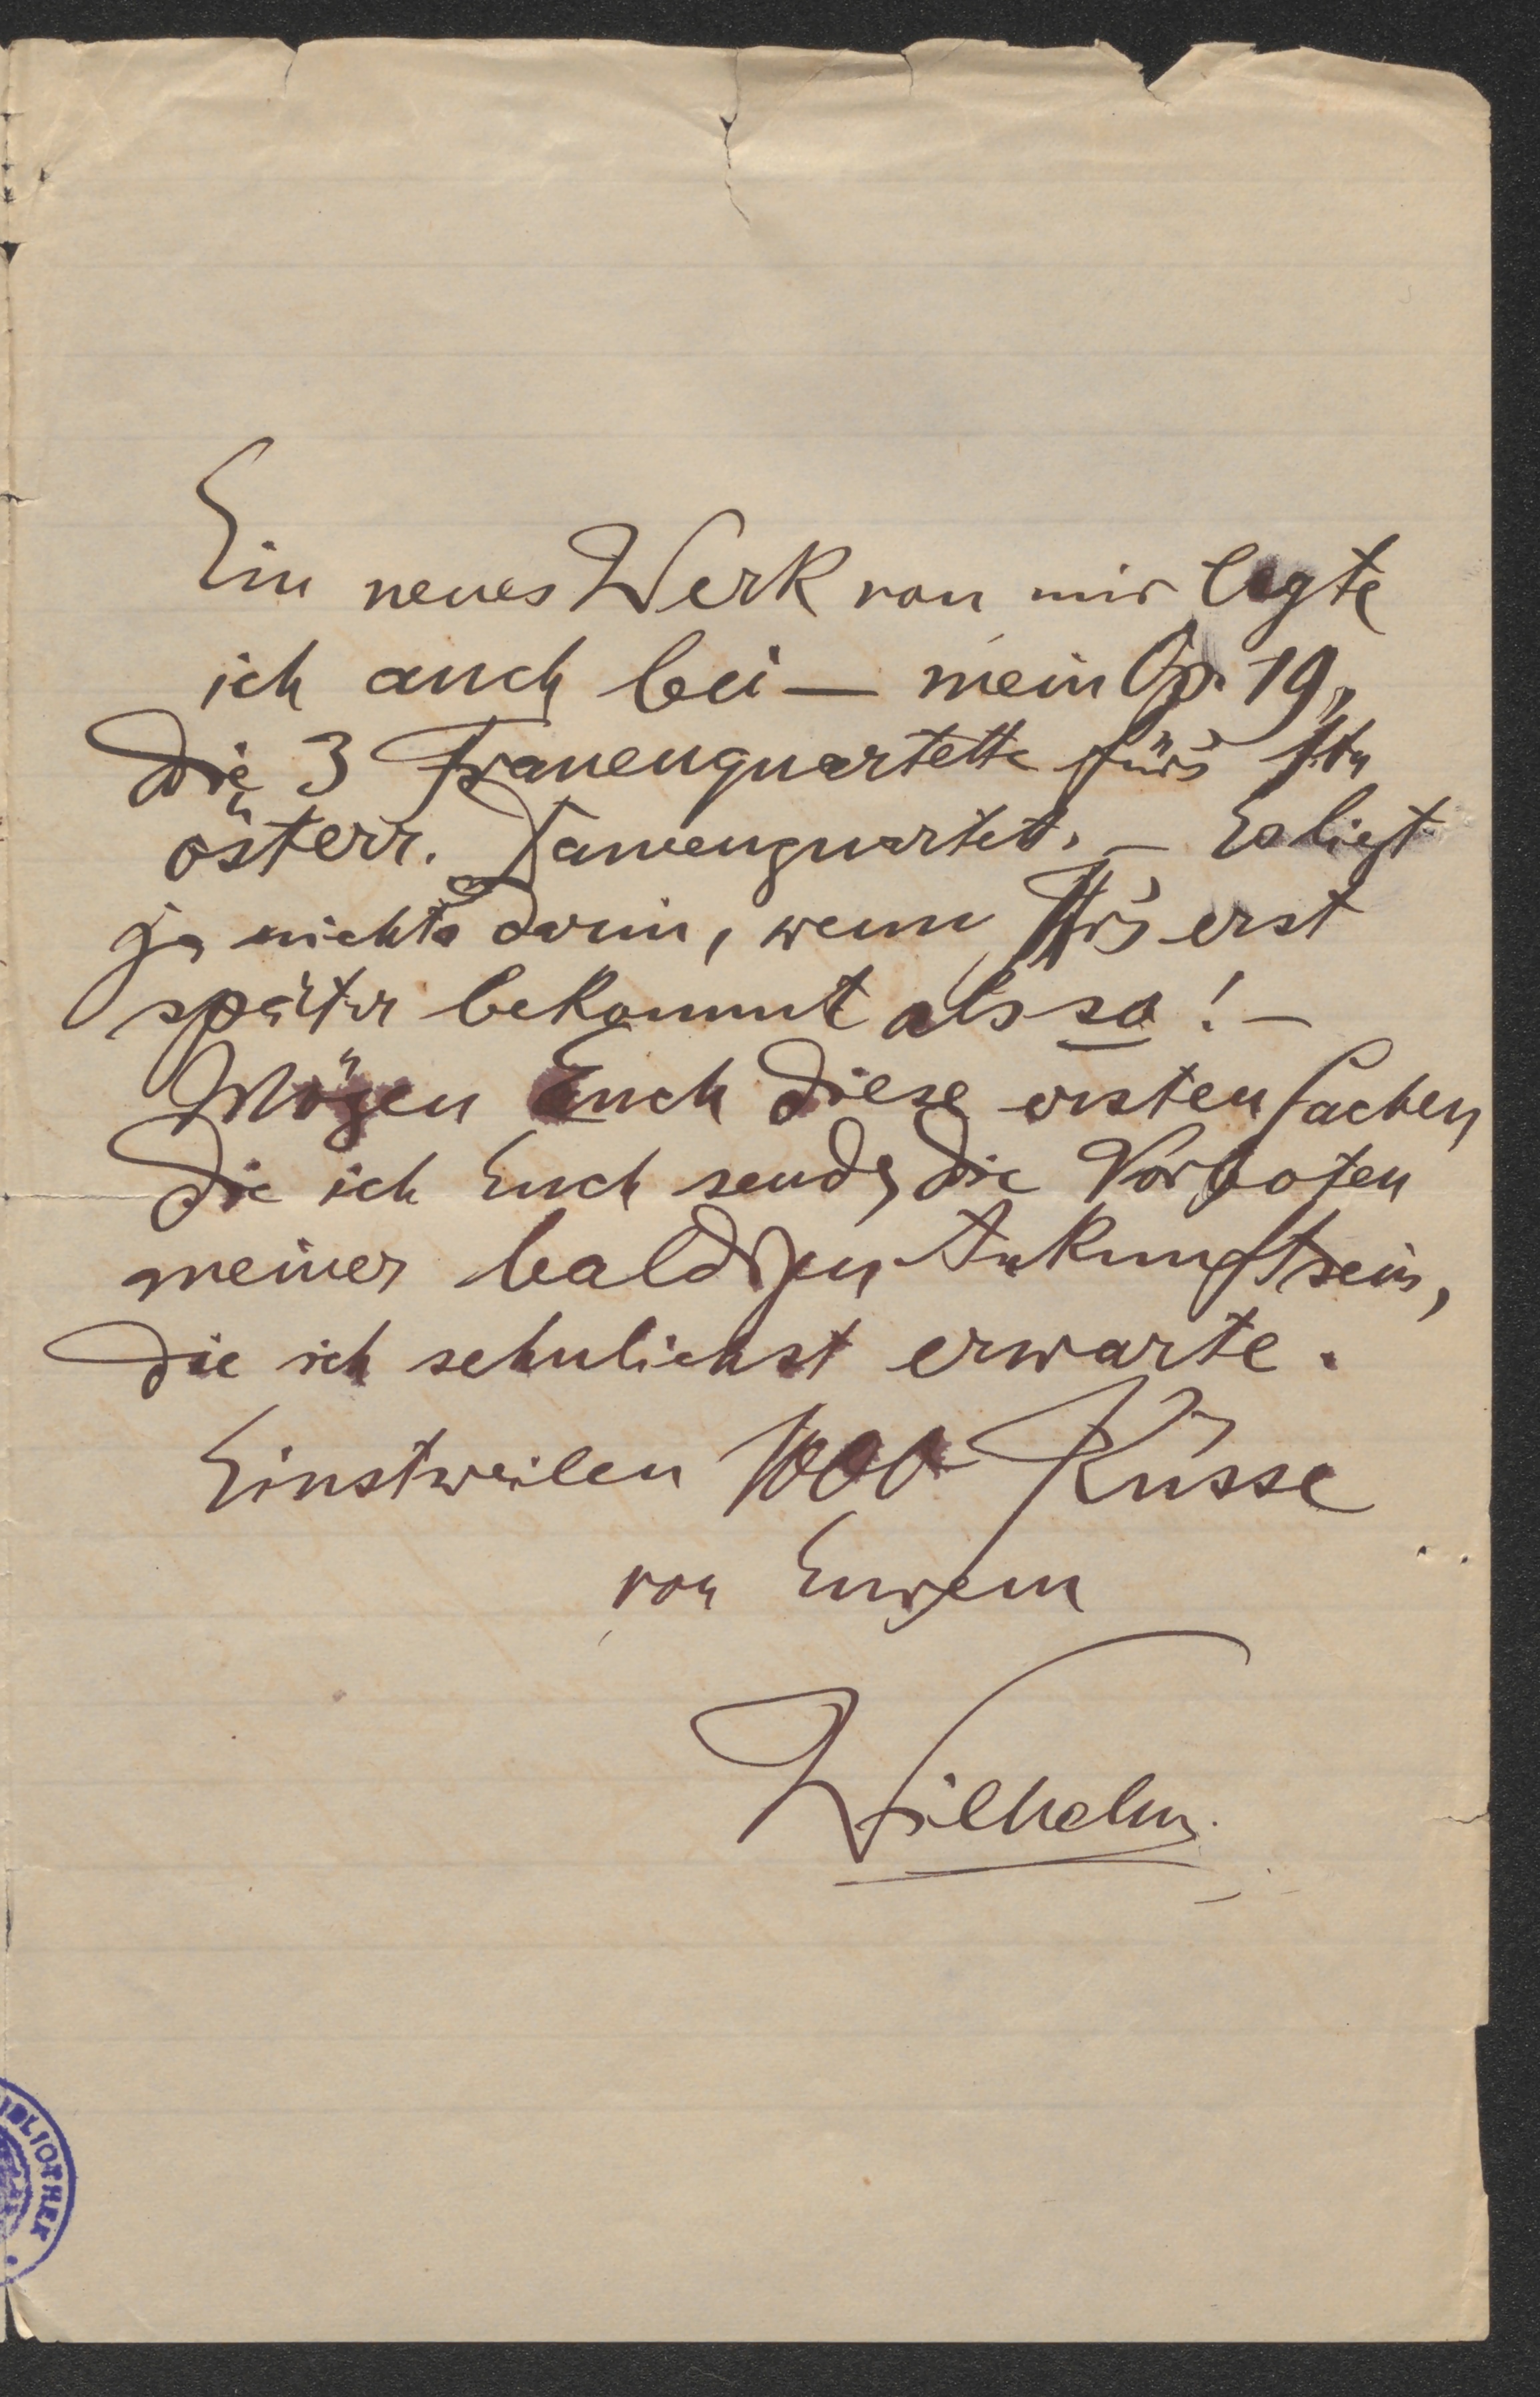 Ein neues Werk von mir legte
ich auch bei — mein Op. 19,
die 3 Frauenquartette für's 1te
österr. Damenquartett. — Es liegt
ja nichts darin, wenn Ihr's erst
später bekommt als so! —
Mögen Euch diese ersten Sachen
die ich Euch sende, die Vorboten
meiner baldigen Ankunft sein,
die ich sehnlichst erwarte.
Einstweilen 1000 Küsse
von Eurem
Wilhelm.
BIBLIOTHEK